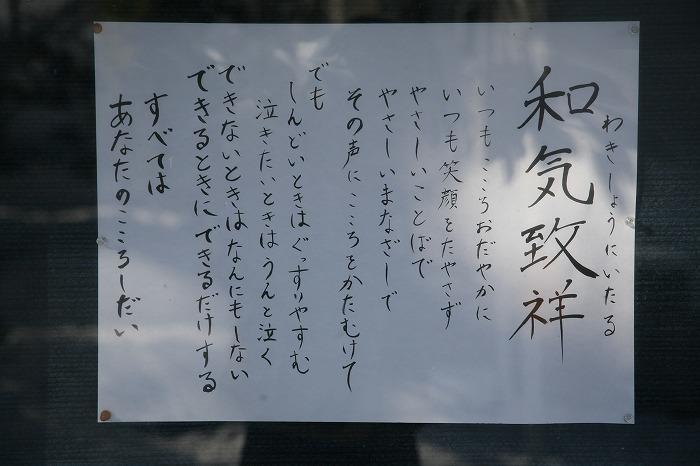 わきしょうにいたる
和気致祥
いつもこころおだやかに
いつも笑顔をたやさず
やさしいことばで
やさしいまなざしで
その声にこころをかたむけて
でも
しんどいときはぐっすりやすむ
泣きたいときはうんと泣く
できないときはなんにもしない
できるときにできるだけする
すべては
あなたのこころしだい